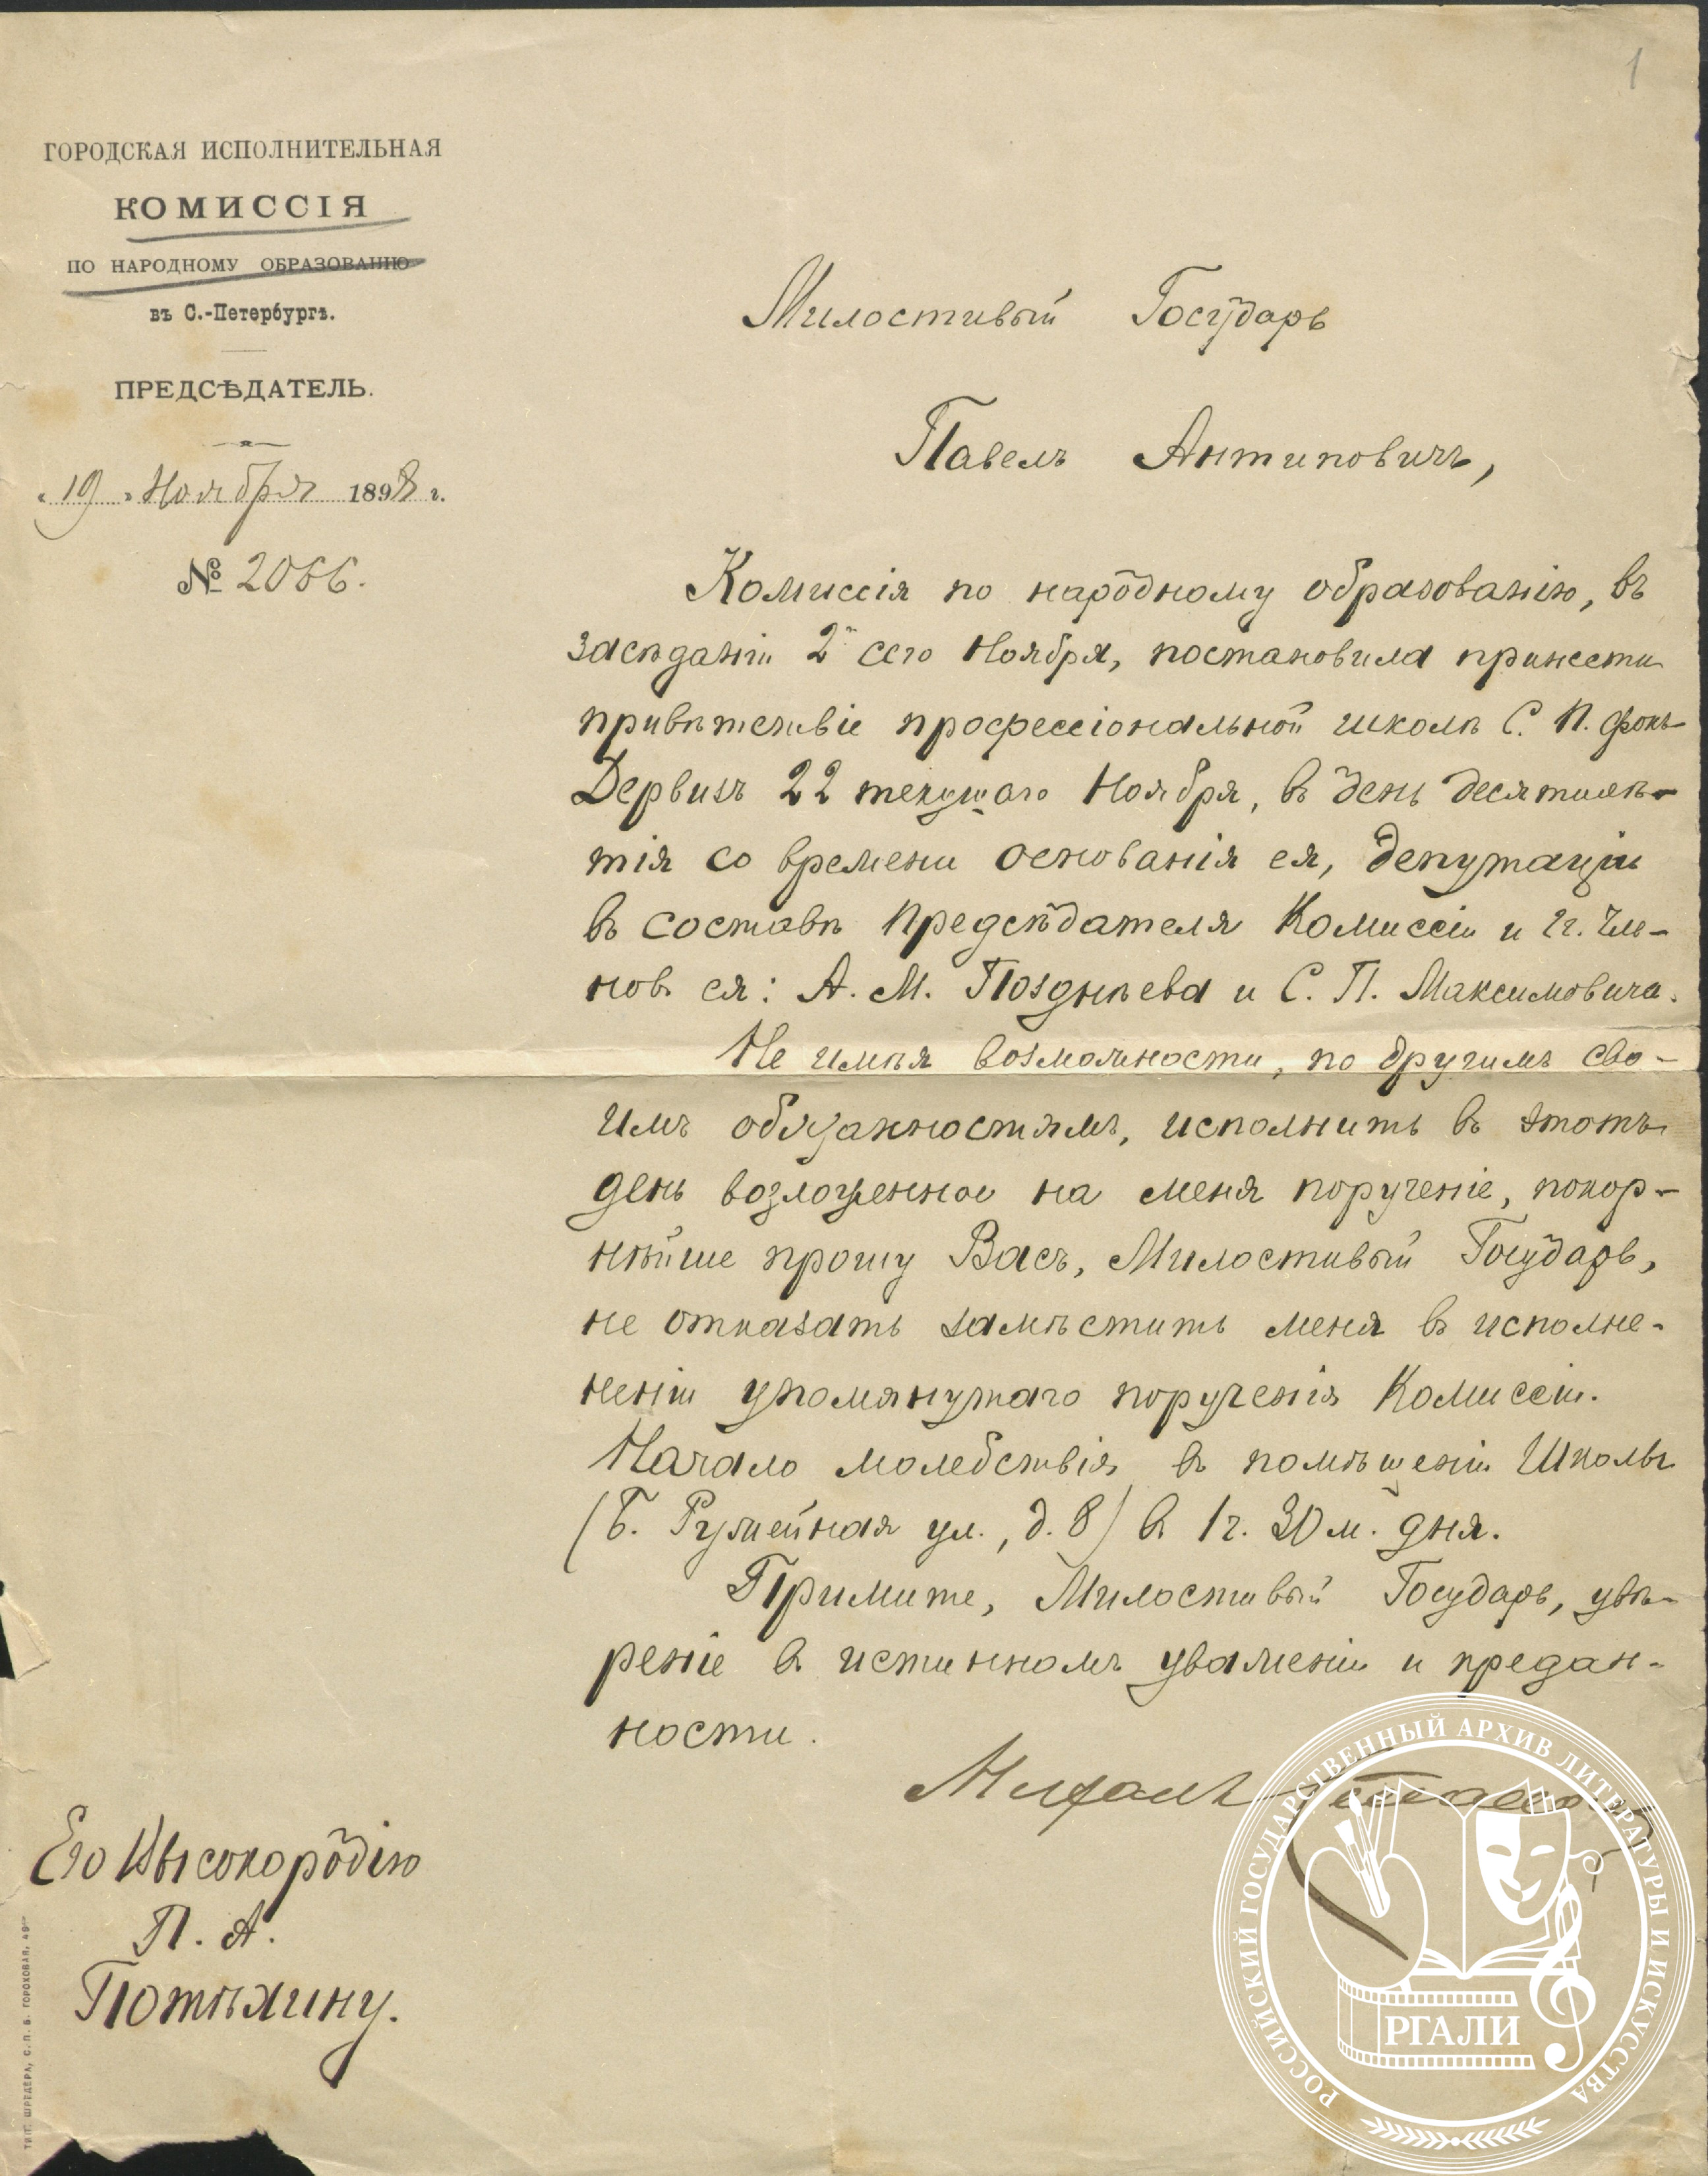 1
ГОРОДСКАЯ ИСПОЛНИТЕЛЬНАЯ
КОМИССІЯ
ПО НАРОДНОМУ ОБРАЗОВАНІЮ
въ С.-Петербургѣ.
ПРЕДСѢДАТЕЛЬ.
« 19 » Ноября 1898 г.
№ 2066.
Милостивый Государь
Павелъ Антиповичъ,
Комиссія по народному образованію, въ
засѣданіи 2го сего Ноября, постановила принести
привѣтствіе профессіональной школѣ С. П. фонъ-
Дервизъ 22 текущаго Ноября, въ день десятилѣ-
тія со времени основанія ея, депутаціи
въ составѣ Предсѣдателя Комиссіи и гг. Чле-
новъ ея: А. М. Позднѣева и С. П. Максимовича.
Не имѣя возможности, по другимъ сво-
имъ обязанностямъ, исполнить въ этотъ
день возложенное на меня порученіе, покор-
нѣйше прошу Васъ, Милостивый Государь,
не отказать замѣстить меня въ исполне-
неніи упомянутаго порученія Комиссіи.
Начало молебствія въ помѣщеніи Школы
(Б. Ружейная ул., д. 8) въ 1 ч. 30 м. дня.
Примите, Милостивый Государь, увѣ-
реніе въ истинномъ уваженіи и предан-
ности.
Его Высокородію
П. А.
Потѣхину.
ТИП. ШРЕДЕРА, С.П.Б. ГОРОХОВАЯ, 49
РОССИЙСКИЙ ГОСУДАРСТВЕННЫЙ АРХИВ ЛИТЕРАТУРЫ И ИСКУССТВА
РГАЛИ